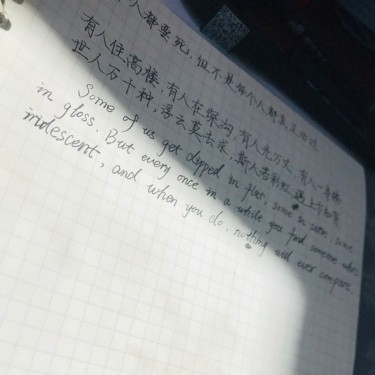 人人都要死，但不是每个人都真正活过
有人住高楼，有人在深沟，有人光万丈，有人一身锈
世人万千种，浮云莫去求，斯人若彩虹，遇上方知有
Some of us get dipped in flat, some in satin, some
in gloss. But every once in a while you find someone who's
iridescent, and when you do, nothing will ever compare.